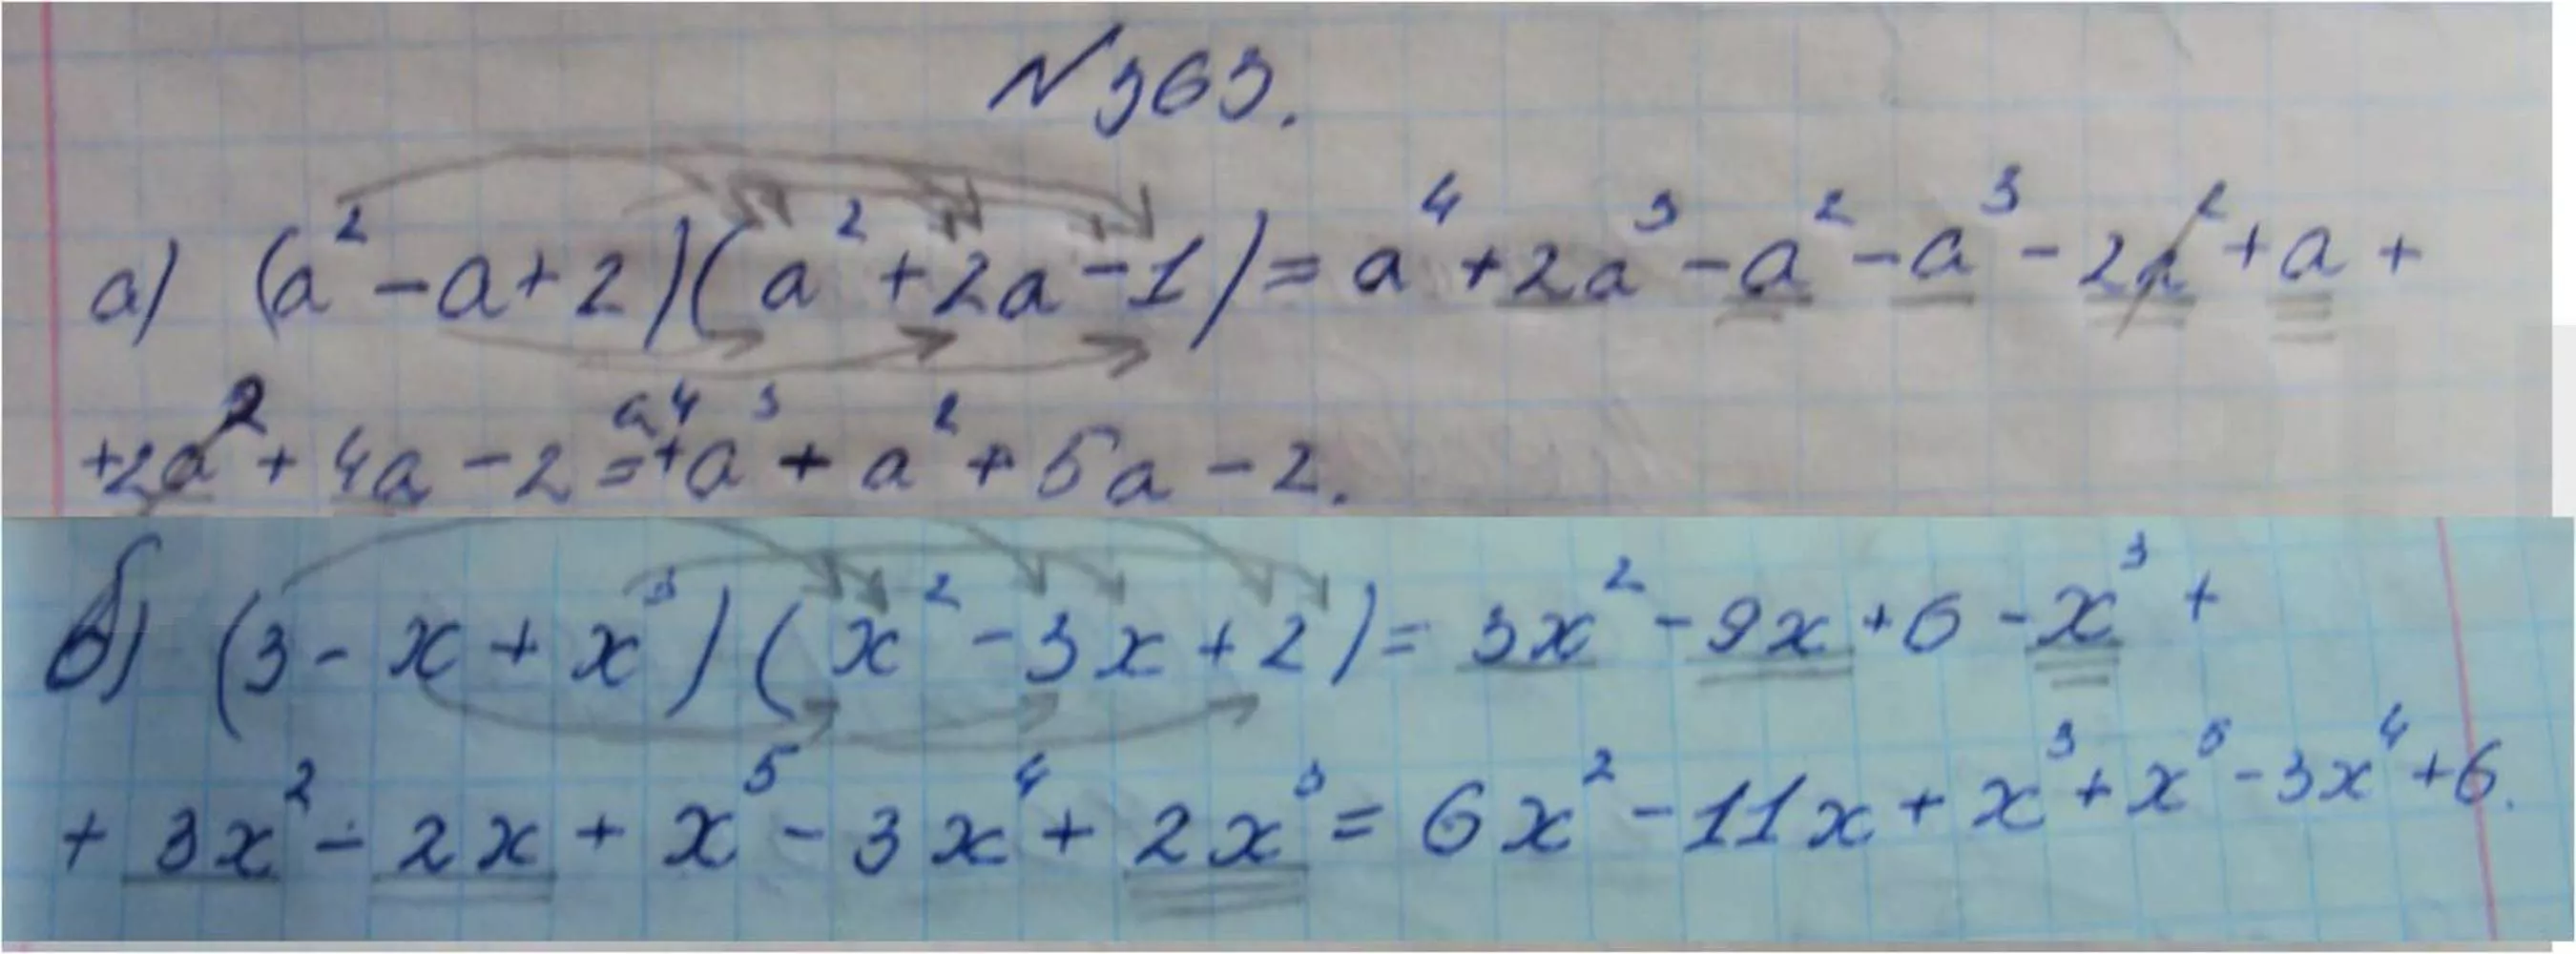 №363.
а) (a² - a + 2)(a² + 2a - 1) = a⁴ + 2a³ - a² - a³ - 2a² + a +
+ 2a² + 4a - 2 = a⁴ + a³ + a² + 5a - 2.
б) (3 - x + x³)(x² - 3x + 2) = 3x² - 9x + 6 - x³ +
+ 3x² - 2x + x⁵ - 3x⁴ + 2x³ = 6x² - 11x + x³ + x⁵ - 3x⁴ + 6.